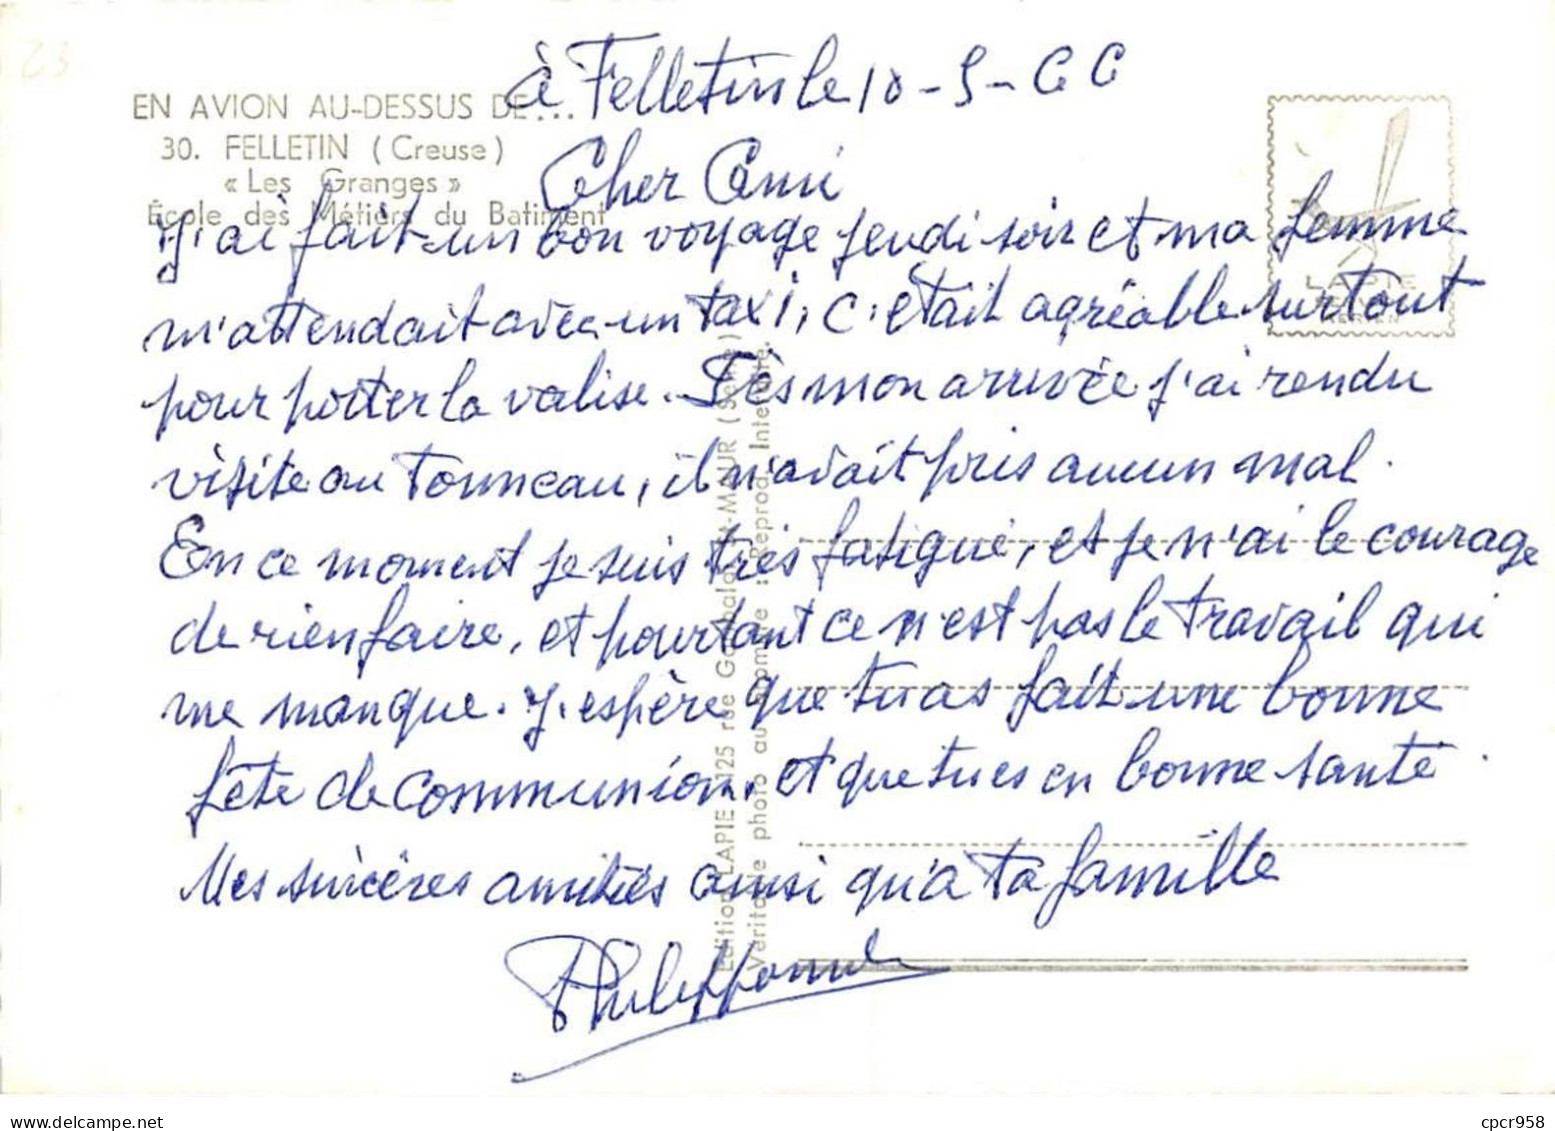 23
à Felletin le 10-5-66
EN AVION AU-DESSUS DE...
30. FELLETIN (Creuse)
« Les Granges »
École des Métiers du Batiment
Cher Ami
J'ai fait un bon voyage jeudi soir et ma femme
m'attendait avec un taxi, c'était agréable surtout
pour porter la valise. Dès mon arrivée j'ai rendu
visite au Tonneau, il n'avait pris aucun mal.
En ce moment je suis très fatigué, et je n'ai le courage
de rien faire, et pourtant ce n'est pas le travail qui
me manque. J'espère que tu as fait une bonne
fête de communion, et que tu es en bonne santé.
Mes sincères amitiés ainsi qu'à ta famille
LAPIE
Edition LAPIE 125 rue St-MAUR (Seine)
Véritable photo au bromure : Reprod. Interdite.
cpcr958